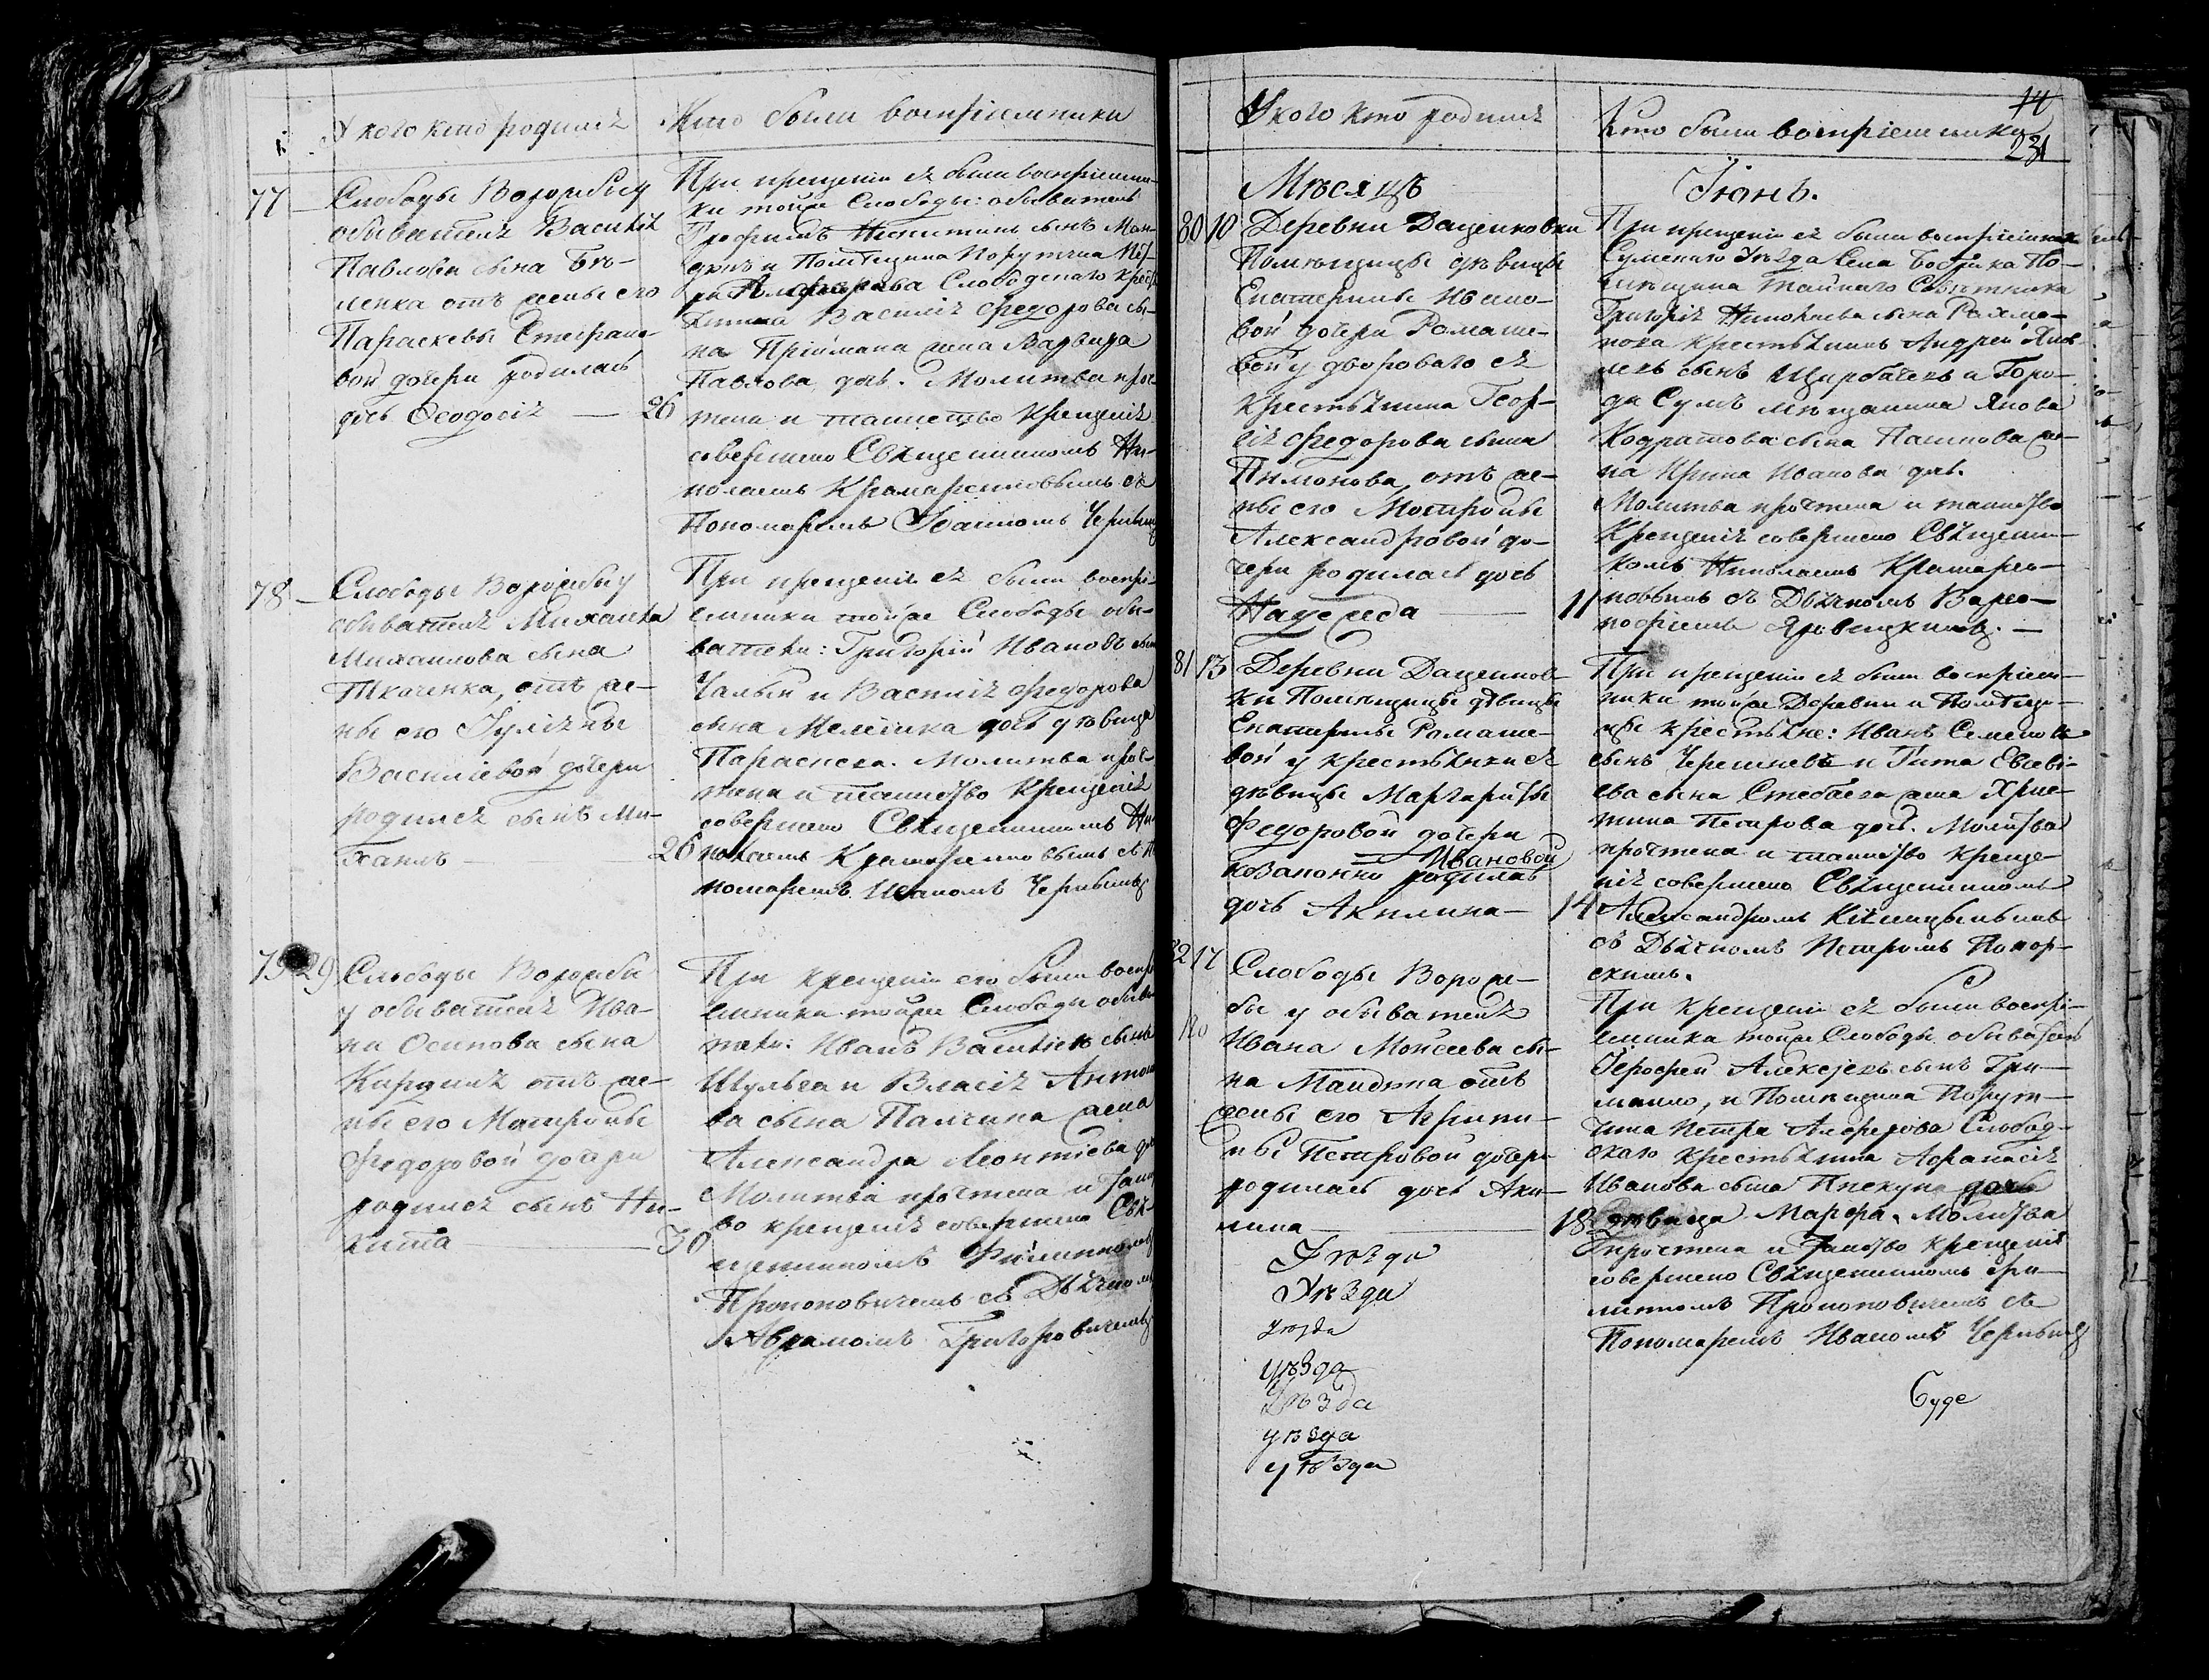 У кого кто родился
Кто были воспріемники
77 —
Слободы Ворожбы у
обывателя Василія
Павлова сына Бѣ-
ленка отъ жены его
Параскевы Стефано-
вой дочери родилась
дочь Ѳеодосія — 26
При крещеніи ея были воспріемни-
ки тойже Слободы: обыватель
Трофимъ Никитинъ сынъ
и Помѣщика Порутчика Пет-
ра Слободскаго крест-
янина Василія Федорова сы-
на Пріймана жена
Павлова дочь. Молитва проч-
тена и таинство крещенія
совершено Священникомъ Ни-
колаемъ Крамаренковымъ съ
Пономаремъ Іоанномъ
78 —
Слободы Ворожбы у
обывателя Михаила
Михаилова сына
Ткаченка, отъ же-
ны его Іуліяны
Василіевой дочери
родился сынъ Ми-
хаилъ — 26
При крещеніи ея были воспрі-
емники тойже Слободы обы-
ватели: Григорій Ивановъ сынъ
Чалый и Василія Федорова
сына дочь дѣвица
Параскева. Молитва проч-
тена и таинство крещенія
совершено Священникомъ Ни-
колаемъ Крамаренковымъ съ По-
номаремъ Иваномъ
79 29
Слободы Ворожбы
у обывателя Ива-
на Осипова сына
отъ же-
ны его Матроны
Федоровой дочери
родился сынъ Ни-
кита — 30
При крещеніи его были воспрі-
емники тойже Слободы обыва-
тели: Иванъ Василіевъ сынъ
Шульга и Власія Антоно-
ва сына жена
Александра Леонтіева дочь
Молитва прочтена и таинст-
во крещенія совершено Свя-
щенникомъ Филиппомъ
Прокоповичемъ съ Дьячкомъ
Аврамомъ Григоровичемъ
14
231
У кого кто родился
Кто были воспріемники
Мѣсяцъ
Іюнь.
80 10
Деревни Даценковки
Помѣщицы дѣвицы
Екатерины Ивано-
вой дочери Ромаше-
вой у двороваго ея
крестьянина Геор-
гія Федорова сына
Пимонова, отъ же-
ны его Матроны
Александровой до-
чери родилась дочь
— 11
При крещеніи ея были воспріемники
Сумскаго Уѣзда Села По-
мѣщика Тайнаго Совѣтника
Григорія Николаева сына Рахма-
нова крестьянинъ Андрей Яков-
левъ сынъ и Горо-
да Сумъ мѣщанина Якова
Кодратова сына Пашкова же-
на Ирина Иванова дочь.
Молитва прочтена и таинство
Крещенія совершено Священни-
комъ Николаемъ Крамарен-
ковымъ съ Дьячкомъ Варѳо-
81 13
Деревни Даценков-
ки Помѣщицы дѣвицы
Екатерины Ромаше-
вой у крестьянки ея
дѣвицы Маргариты
Федоровой дочери
Ивановой
незаконно родилась
дочь Акилина — 14
При крещеніи ея были воспріем-
ники тойже Деревни и Помѣщи-
цы крестьяне: Иванъ Семеновъ
сынъ и Тита Евсеві-
ева сына жена Хрис-
тина Петрова дочь. Молитва
прочтена и таинство креще-
нія совершено Священникомъ
Александромъ
съ Дьячкомъ Петромъ
82 17
Слободы Ворож-
бы у обывателя
Ивана Моисеева сы-
на отъ
жены его Агрипи-
ны Петровой дочери
родилась дочь Аки-
лина — 18
При крещеніи ея были воспрі-
емники тойже Слободы обыватель
Іерофей Алексѣевъ сынъ
и Помѣщика Порут-
чика Петра Слобод-
скаго крестьянина Афанасія
Иванова сына дочь
дѣвица Марѳа. Молитва
прочтена и таинство крещенія
совершено Священникомъ Фи-
липпомъ Прокоповичемъ съ
Пономаремъ Иваномъ
Уѣзда
Уѣзда
уѣзда
уѣзда
Уѣзда
уѣзда
уѣзда
Буде